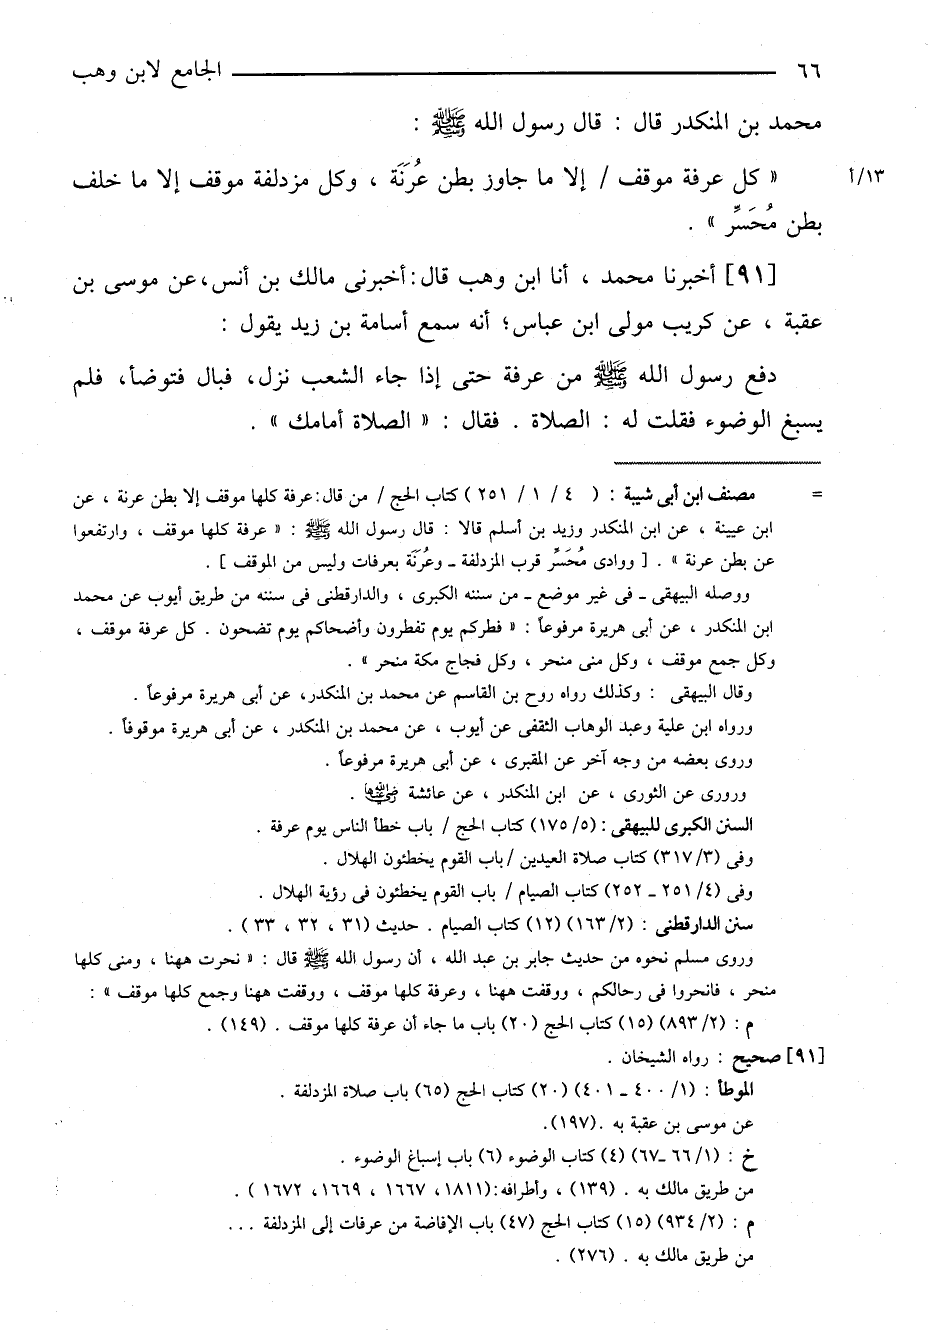 ٦٦ الجامع لابن وهب
محمد بن المنكدر قال : قال رسول الله ﷺ :
١٣/أ « كل عرفة موقف / إلا ما جاوز بطن عُرَنَة ، وكل مزدلفة موقف إلا ما خلف
بطن مُحَسِّر » .
[٩١] أخبرنا محمد ، أنا ابن وهب قال : أخبرنى مالك بن أنس، عن موسى بن
عقبة ، عن كريب مولى ابن عباس؛ أنه سمع أسامة بن زيد يقول :
دفع رسول الله ﷺ من عرفة حتى إذا جاء الشعب نزل، فبال فتوضأ، فلم
يسبغ الوضوء فقلت له : الصلاة . فقال : « الصلاة أمامك » .
= مصنف ابن أبى شيبة : ( ٤ / ١ / ٢٥١ ) كتاب الحج / من قال: عرفة كلها موقف إلا بطن عرنة ، عن
ابن عيينة ، عن ابن المنكدر وزيد بن أسلم قالا : قال رسول الله ﷺ : « عرفة كلها موقف ، وارتفعوا
عن بطن عرنة » . [ ووادى مُحَسِّر قرب المزدلفة ـ وعُرَنَة بعرفات وليس من الموقف ] .
ووصله البيهقى ـ فى غير موضع ـ من سننه الكبرى ، والدارقطنى فى سننه من طريق أيوب عن محمد
ابن المنكدر ، عن أبى هريرة مرفوعاً : « فطركم يوم تفطرون وأضحاكم يوم تضحون . كل عرفة موقف ،
وكل جمع موقف ، وكل منى منحر ، وكل فجاج مكة منحر » .
وقال البيهقى : وكذلك رواه روح بن القاسم عن محمد بن المنكدر، عن أبى هريرة مرفوعاً .
ورواه ابن علية وعبد الوهاب الثقفى عن أيوب ، عن محمد بن المنكدر ، عن أبى هريرة موقوفاً .
وروى بعضه من وجه آخر عن المقبرى ، عن أبى هريرة مرفوعاً .
ورورى عن الثورى ، عن ابن المنكدر ، عن عائشة رضي الله عنها .
السنن الكبرى للبيهقى : (٥/ ١٧٥) كتاب الحج / باب خطأ الناس يوم عرفة .
وفى (٣/ ٣١٧) كتاب صلاة العيدين / باب القوم يخطئون الهلال .
وفى (٤/ ٢٥١ ـ ٢٥٢) كتاب الصيام / باب القوم يخطئون فى رؤية الهلال .
سنن الدارقطنى : (٢/ ١٦٣) (١٢) كتاب الصيام . حديث (٣١ ، ٣٢ ، ٣٣ ) .
وروى مسلم نحوه من حديث جابر بن عبد الله ، أن رسول الله ﷺ قال : « نحرت ههنا ، ومنى كلها
منحر ، فانحروا فى رحالكم ، ووقفت ههنا ، وعرفة كلها موقف ، ووقفت ههنا وجمع كلها موقف » :
م : (٢/ ٨٩٣) (١٥) كتاب الحج (٢٠) باب ما جاء أن عرفة كلها موقف . (١٤٩) .
[٩١] صحيح : رواه الشيخان .
الموطأ : (١/ ٤٠٠ ـ ٤٠١) (٢٠) كتاب الحج (٦٥) باب صلاة المزدلفة .
عن موسى بن عقبة به .(١٩٧).
خ : (١/ ٦٦ ـ٦٧) (٤) كتاب الوضوء (٦) باب إسباغ الوضوء .
من طريق مالك به . (١٣٩) ، وأطرافه: (١٨١١، ١٦٦٧ ، ١٦٦٩، ١٦٧٢ ) .
م : (٢/ ٩٣٤) (١٥) كتاب الحج (٤٧) باب الإفاضة من عرفات إلى المزدلفة ...
من طريق مالك به . (٢٧٦) .